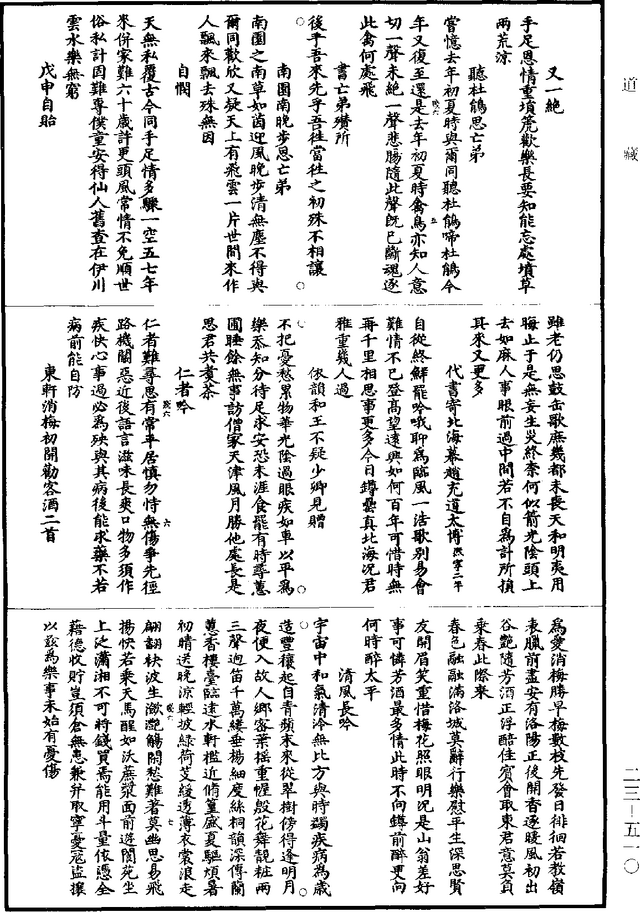 道藏
又一絕
手足恩情重塤篪歡樂長要知能忘處墳草
兩荒涼
聽杜鵑思亡弟
當憶去年初夏時與爾同聽杜鵑啼杜鵑今
年又復至還是去年初夏時禽鳥亦知人意
切一聲未絕一聲悲腸隨此聲既已斷魂逐
此禽何處飛
書亡弟殯所
後乎吾來先乎吾往當往之初殊不相讓
南園南晚步思亡弟
南園之南草如茵迎風晚步清無塵不得與
爾同歡欣又疑天上有飛雲一片世間來作
人飄來飄去殊無因
自憫
天無私覆古今同手足情多驟一空五七年
來併家難六十歲許更頭風常情不免順世
俗私計固難專僕童安得仙人舊查在伊川
雲水樂無窮
戊申自貽
雖老仍思鼓缶歌庶幾都未長天和明夷用
晦止于是無妄生災終奈何似箭光陰頭上
去如麻人事眼前過中間若不自為計所損
其來又更多
代書寄北海幕趙充道太博熙寧二年
自從終鮮罷吟哦聊為臨風一浩歌別易會
難情不已登高望遠興如何百年可惜時無
再千里相思事更多今日罇罍真北海況君
雅重幾人過
依韻和王不疑少卿見贈
不把憂愁累物華光陰過眼疾如車以平為
樂忝知分待足求安恐未涯食罷有時尋蕙
圃睡餘無事訪僧家天津風月勝他處長是
思君共煮茶
仁者吟
仁者難尋思有常平居慎勿恃無傷爭先徑
路機關惡近後語言滋味長爽口物多須作
疾快心事過必為殃與其病後能求藥不若
病前能自防
東軒消梅初開勸客酒二首
為愛消梅勝早梅數枝先發日徘徊若教嶺
表臘前盡安有洛陽正後開香逐暖風初出
谷艷隨芳酒正浮醅佳賓會取東君意莫負
乘春此際來
春色融融滿洛城莫辭行樂慰平生深思賢
友開眉笑重惜梅花照眼明況是山翁差好
事可憐芳酒最多情此時不向罇前醉更向
何時醉太平
清風長吟
宇宙中和氣清泠無比方與時蠲疾病為歲
造豐穰起自青蘋末來從翠樹傍得逢明月
夜便入故人鄉密葉搖重幄殷花舞靚粧兩
三聲迥笛千萬縷垂楊細度絲桐韻深傳蘭
蕙香樓臺臨遠水軒檻近脩篁盛夏驅煩暑
初晴送晚涼輕披綠荷芰緩透薄衣裳浪走
翩翻袂波生瀲灧觴閑愁難著莫幽思易飛
揚快若乘天馬醒如沃蔗漿面前遊閬苑坐
上泛瀟湘不可將錢買焉能用斗量依憑全
藉德收貯豈須倉無患兼并取寧憂寇盜攘
以茲為樂事未始有憂傷
二三—五一〇